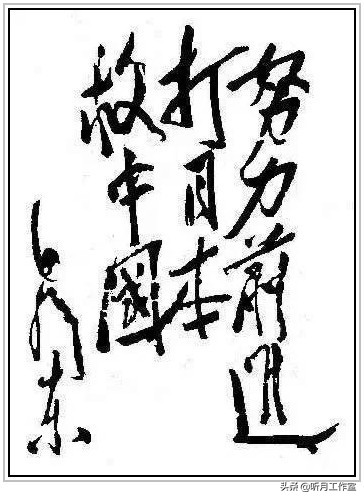 努力前進
打日本
救中國
毛泽东
头条 @听月工作室